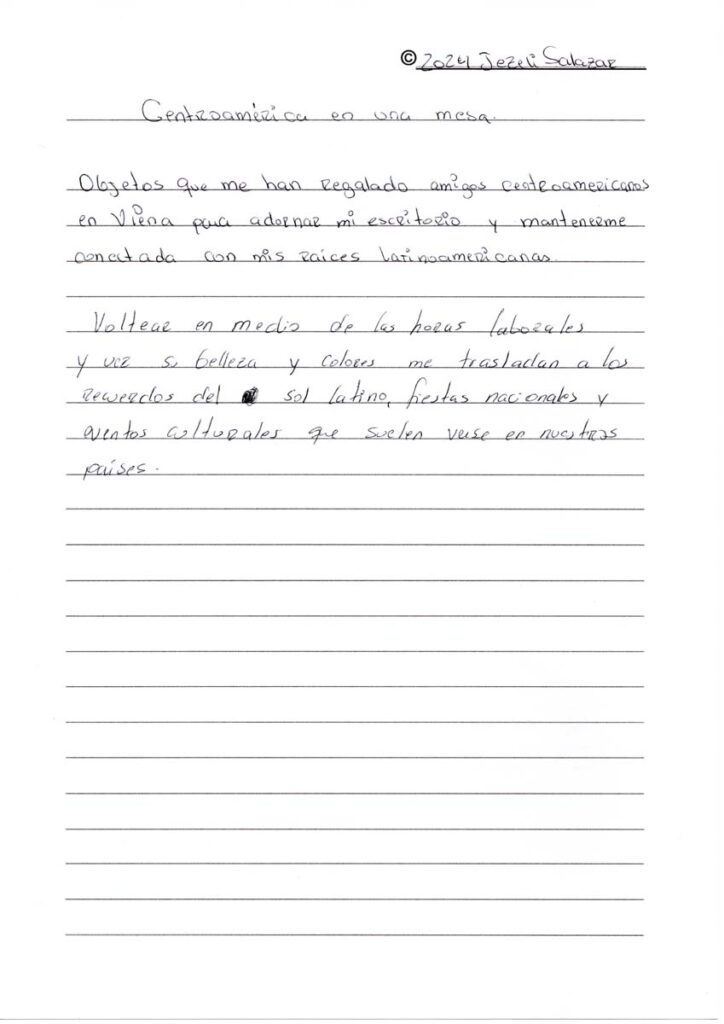 © 2024 Jezeli Salazar
Centroamérica en una mesa.
Objetos que me han regalado amigos centroamericanos
en Viena para adornar mi escritorio y mantenerme
conectada con mis raíces latinoamericanas.
Voltear en medio de las horas laborales
y ver su belleza y colores me trasladan a los
recuerdos del sol latino, fiestas nacionales y
eventos culturales que suelen verse en nuestros
países.